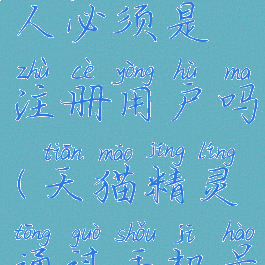 人必须是
zhù cè yòng hù ma
注册用户吗
tiān māo jīng líng
(天猫精灵
tōng guò shǒu jī hào
通过手机号